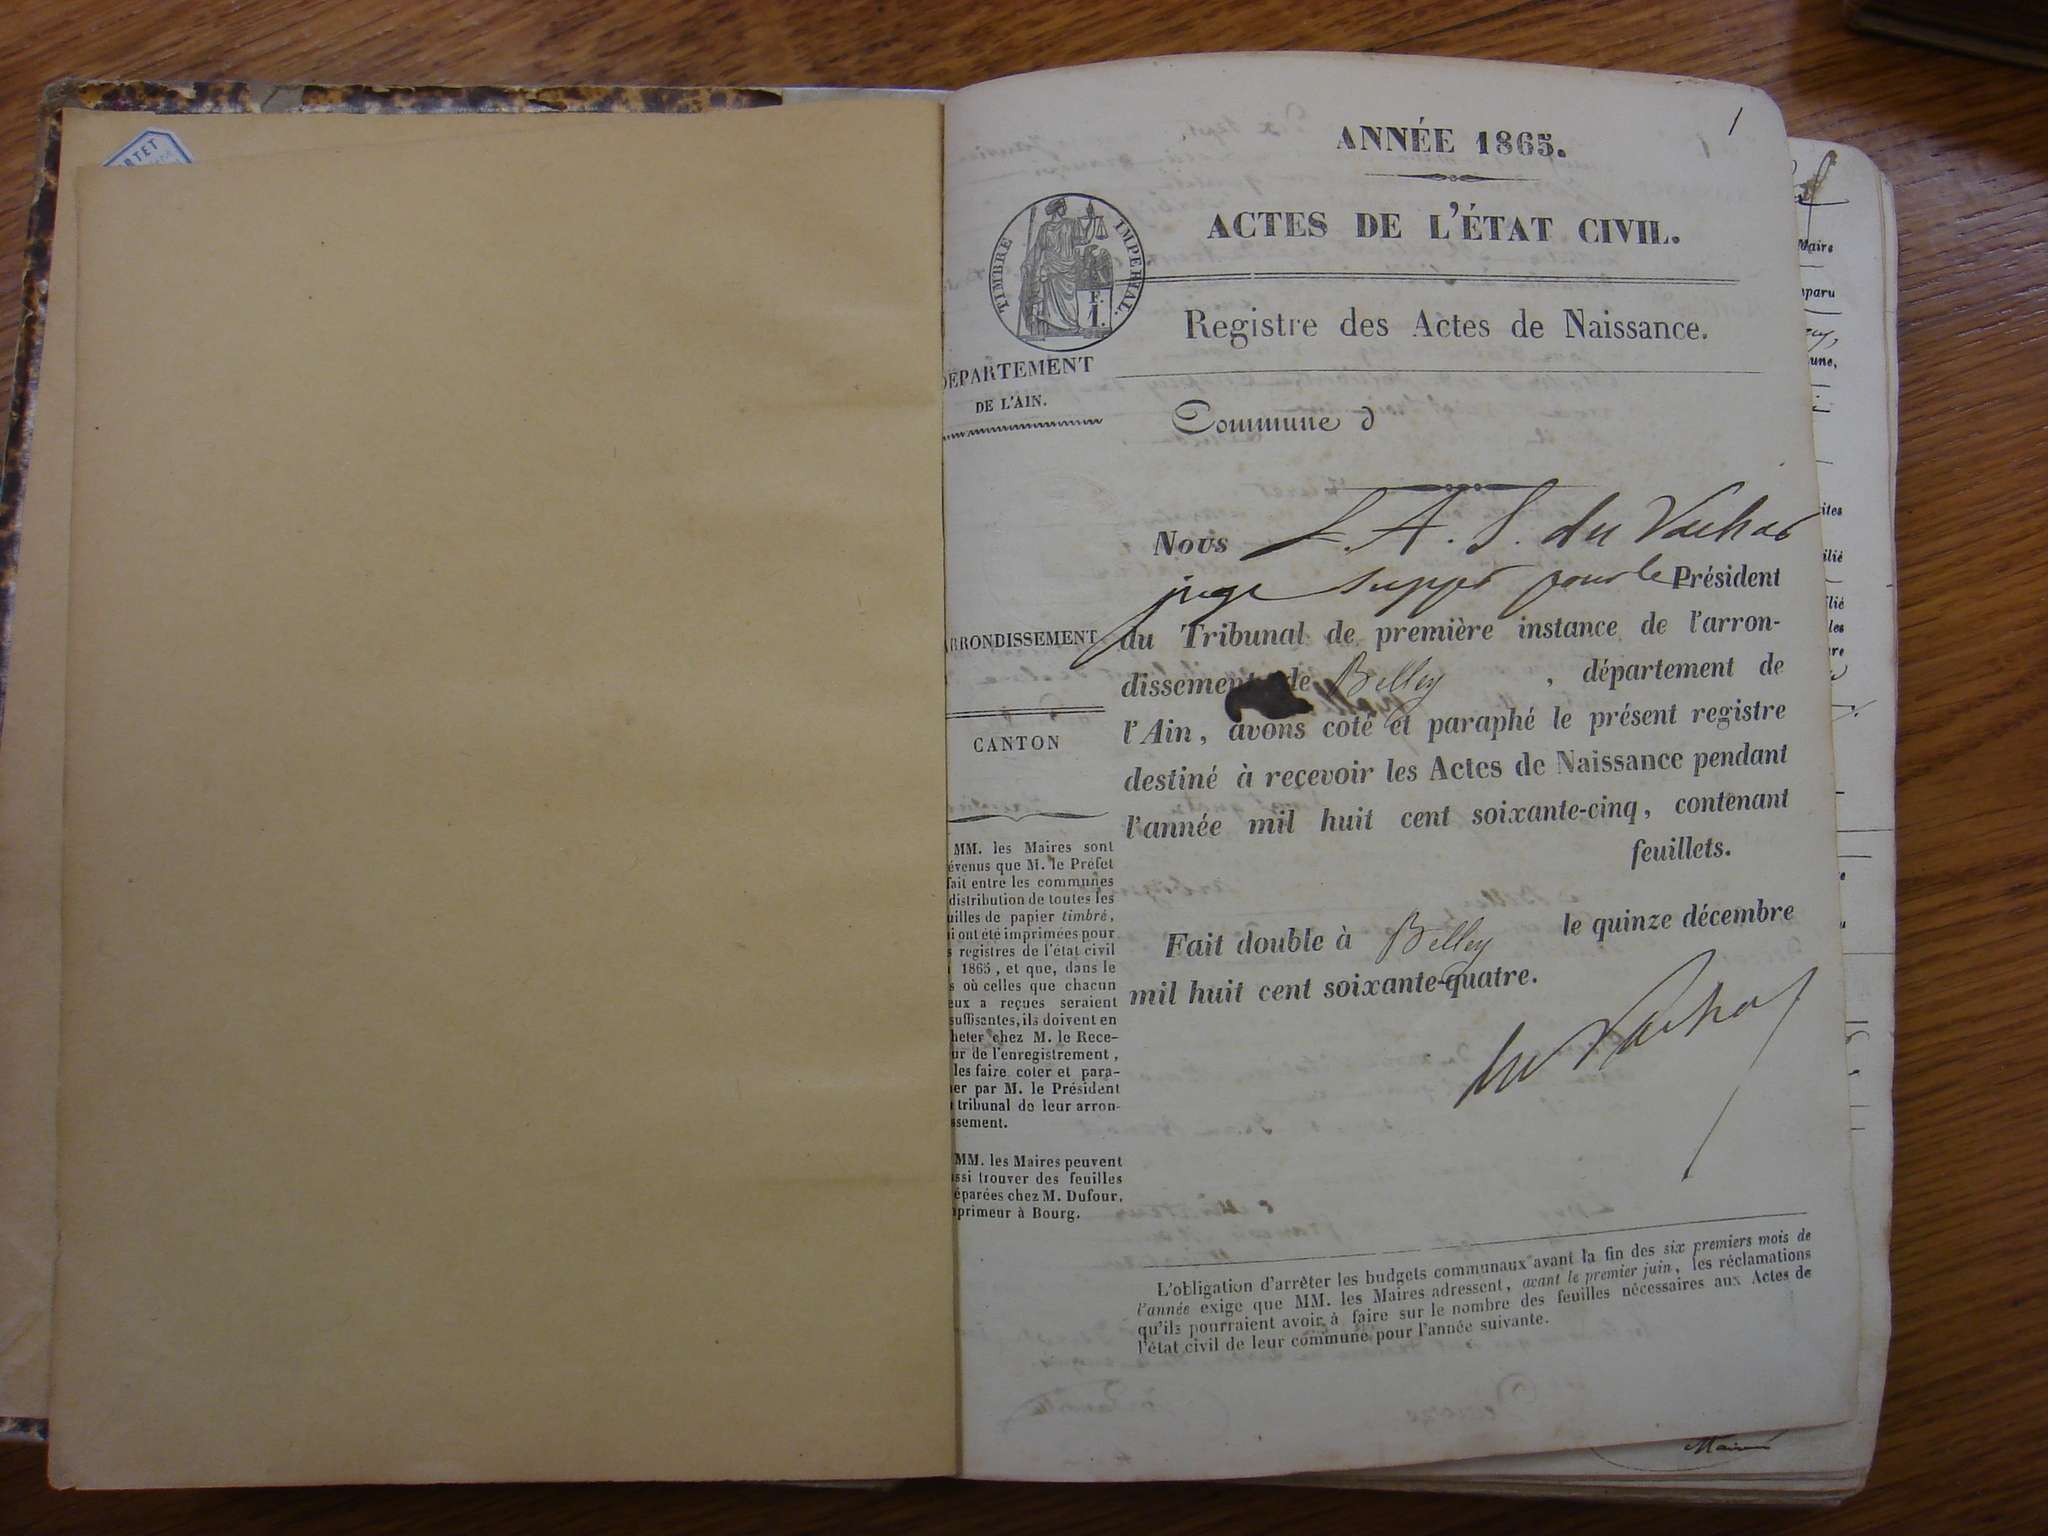 1
ANNÉE 1865.
TIMBRE IMPERIAL.
F.
1.
ACTES DE L'ÉTAT CIVIL.
Registre des Actes de Naissance.
DÉPARTEMENT
DE L'AIN.
Commune d
Nous L. A. S. du Vachat
juge suppt pour le Président
du Tribunal de première instance de l'arron-
dissement de Belley , département de
l'Ain, avons coté et paraphé le présent registre
destiné à recevoir les Actes de Naissance pendant
l'année mil huit cent soixante-cinq, contenant
feuillets.
Fait double à Belley le quinze décembre
mil huit cent soixante-quatre.
du Vachat
ARRONDISSEMENT
CANTON
MM. les Maires sont
évenus que M. le Préfet
fait entre les communes
distribution de toutes les
uilles de papier timbré,
i ont été imprimées pour
s registres de l'état civil
1865, et que, dans le
s où celles que chacun
eux a reçues seraient
suffisantes, ils doivent en
heter chez M. le Rece-
ur de l'enregistrement,
les faire coter et para-
er par M. le Président
tribunal de leur arron-
ssement.
MM. les Maires peuvent
ssi trouver des feuilles
éparées chez M. Dufour,
primeur à Bourg.
L'obligation d'arrêter les budgets communaux avant la fin des six premiers mois de
l'année exige que MM. les Maires adressent, avant le premier juin, les réclamations
qu'ils pourraient avoir à faire sur le nombre des feuilles nécessaires aux Actes de
l'état civil de leur commune pour l'année suivante.
Maire
paru
une,
ites
ilié
ilié
les